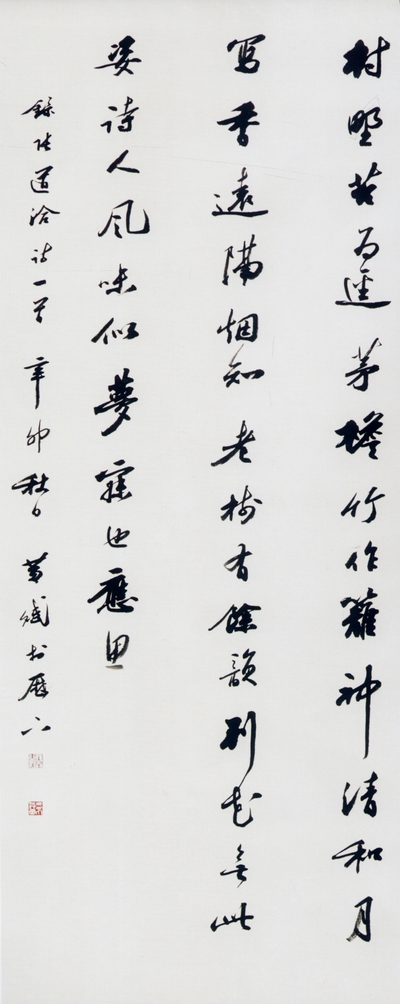 村野苔為迳茅檐竹作籬神清和月
寫香遠隔烟知老樹有餘韻别花無此
姿詩人風味似夢寐也應思
録張道洽詩一首 辛卯秋日 黄斌書歷下